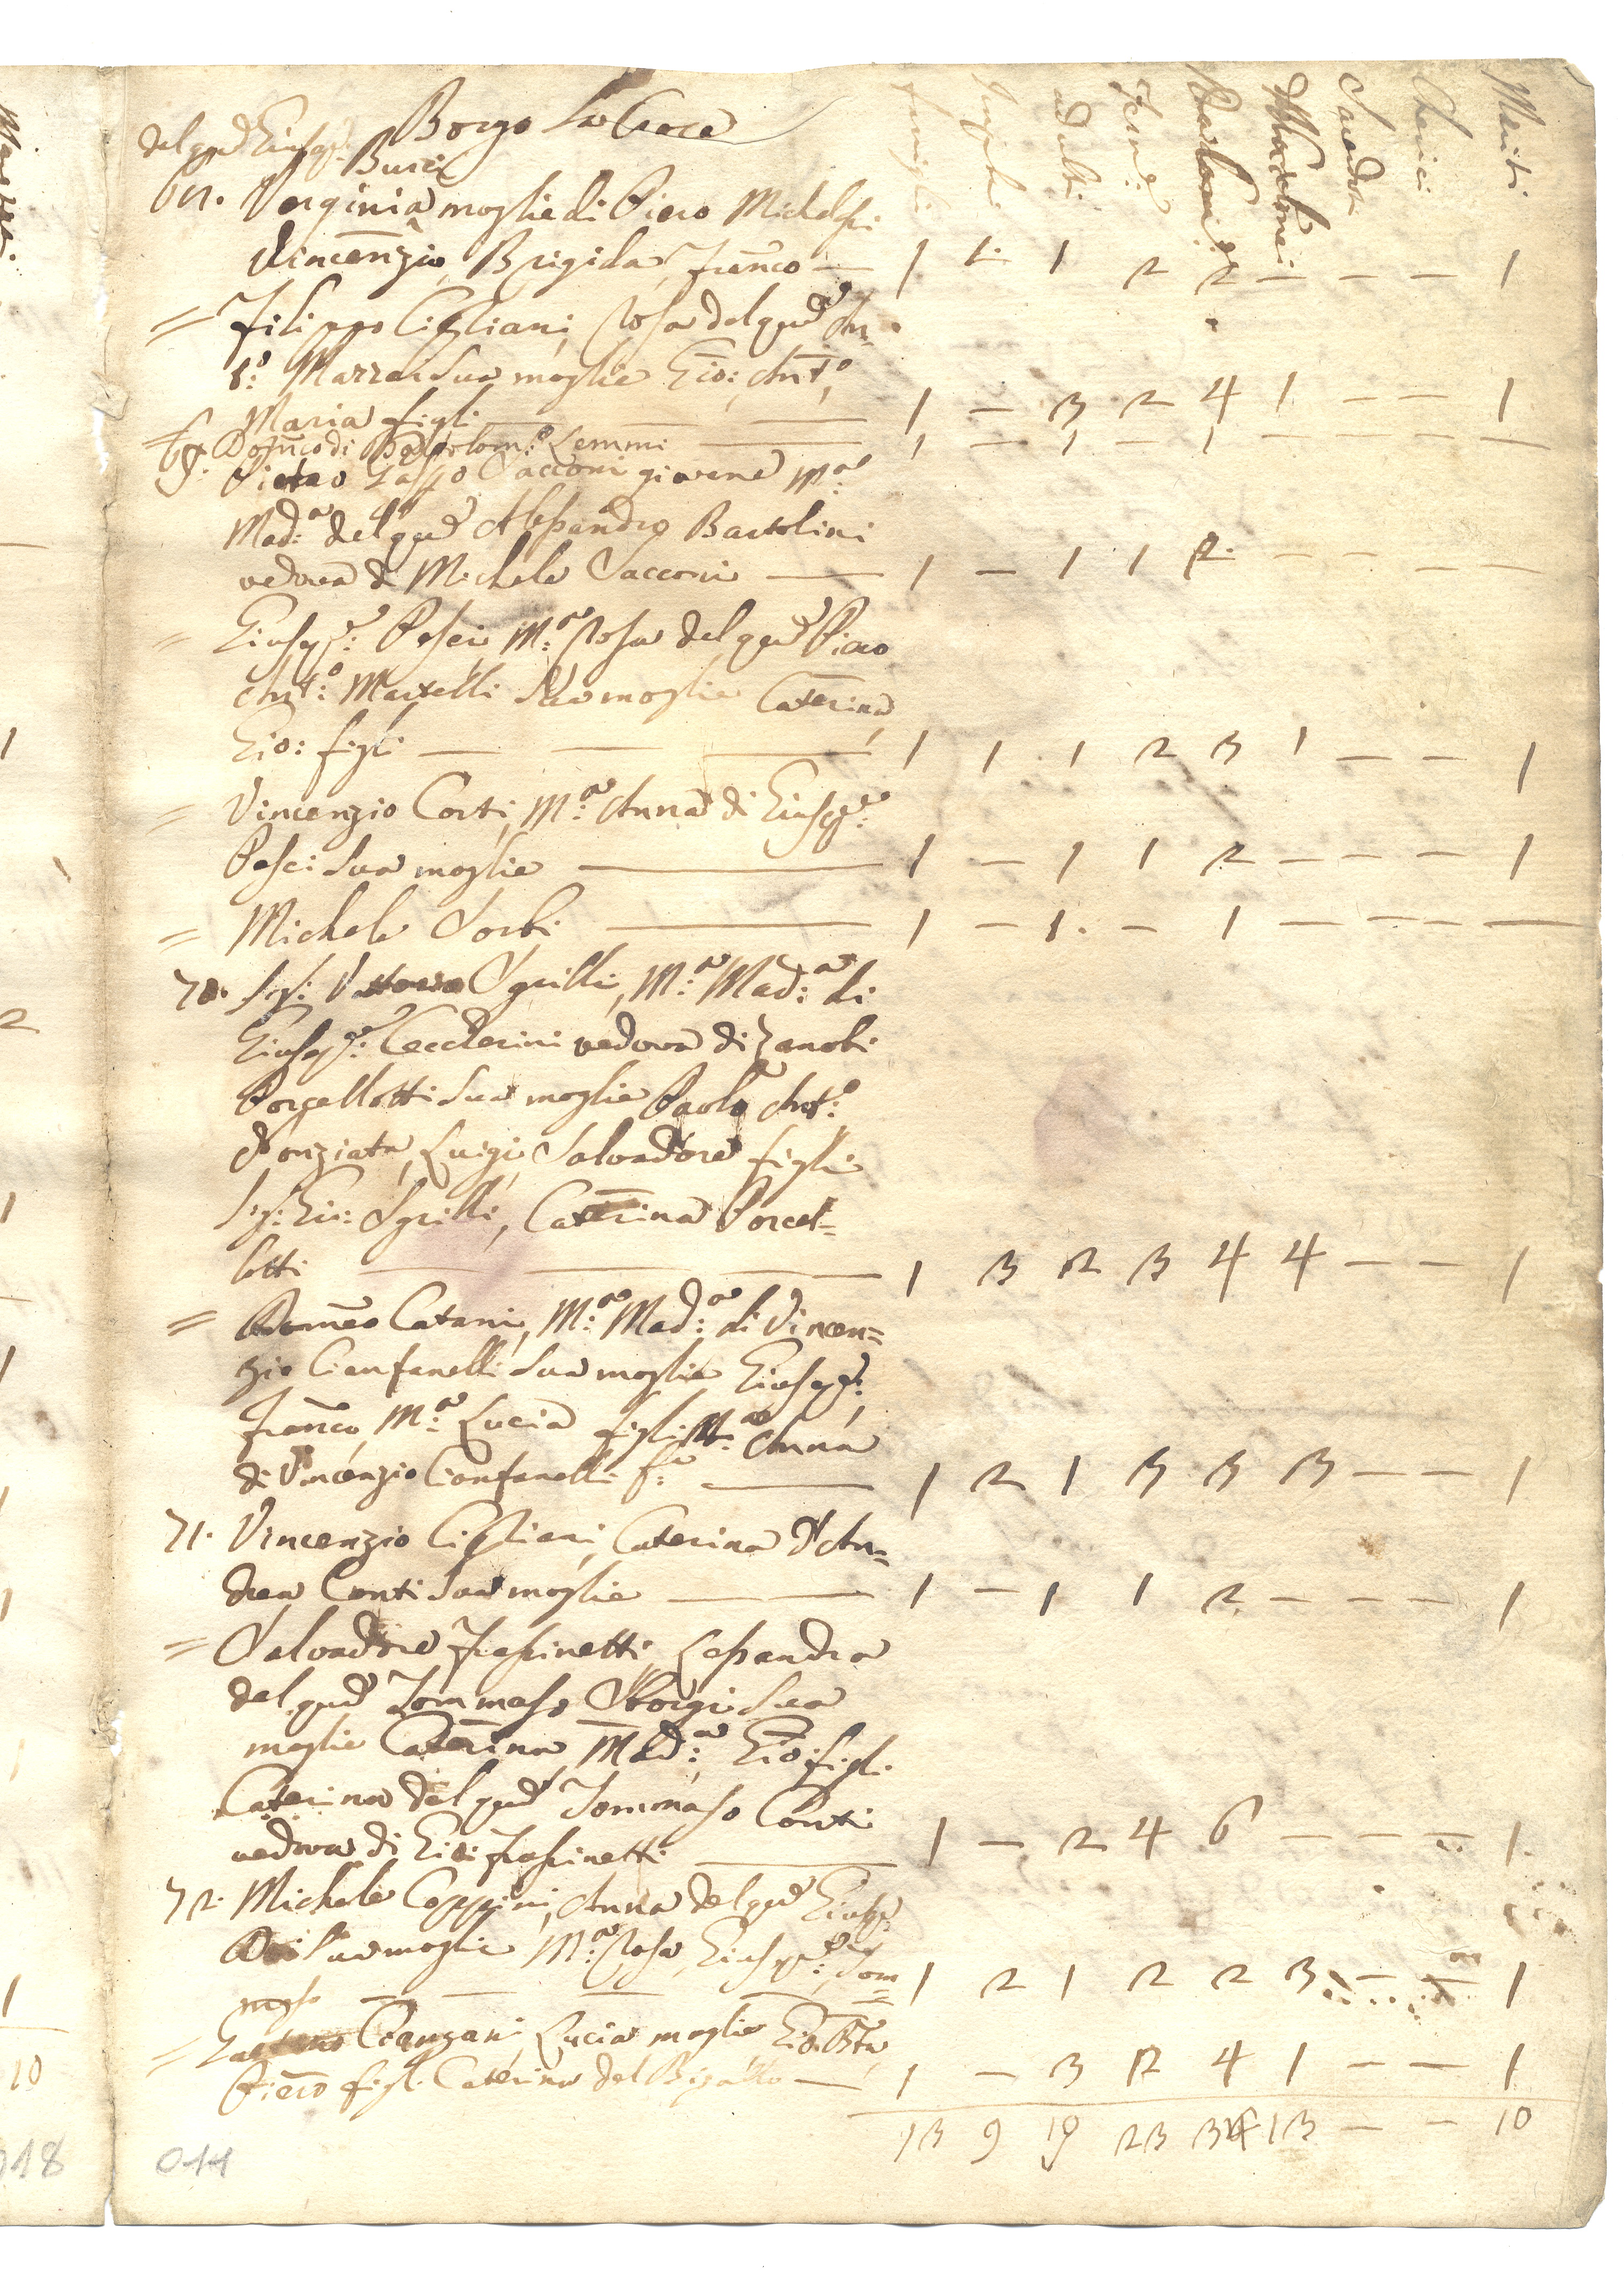 Borgo La Croce
famiglie Impub: Adulti Femē Maschi Sacerdoti Cherici Mariti
del qud Giusepe
Bucci
Verginia moglie di Piero Michelesi
Vincenzio, Brigida, Franco — 1 1 1 2 2 — — — 1
= Filippo Cigliani, Rosa del qud An=
to: Mazzei sua moglie Gio: Anto,
Maria figli — 1 — 3 2 4 1 — — 1
= Domco di Bartolomo Lemmi — 1 — 1 — 1 — — — —
Pietro Gaspo Sacconi giovane Ma:
Mad:a del qud Alessandro Bartolini
vedova di Michele Sacconi — 1 — 1 1 2 — — — —
= Giusepe: Pesci M:a Rosa del qud Piero
Ant:o Martelli sua moglie Caterina,
Gio: figli — 1 1 1 2 3 1 — — 1
= Vincenzio Corti, M:a Anna di Giusepe:
Pesci sua moglie — 1 — 1 1 2 — — — 1
= Michele Sorbi — 1 — 1 — 1 — — — —
70. Sgrilli, M:a Mad:a di
Giusepe: Ceccherini vedova di Zanobi
Porcellotti sua moglie Paolo Ant:o
Nonziata, Luigi, Salvadore figli
Gio: Sgrilli, Caterina Porcel=
lotti — 1 3 2 3 4 4 — — 1
= Romeo Catani, M:a Mad:a di Vincen=
zio Cianfanelli sua moglie Giusepe:,
Franco, M:a Lucia figli M:a Anna
di Vincenzio Cianfanelli fa: — 1 2 1 3 3 3 — — 1
71. Vincenzio Cigliani, Caterina d'An=
drea Conti sua moglie — 1 — 1 1 2 — — — 1
= Salvadore Frassinetti, Lessandra
del qud Tommaso Borgi sua
moglie Caterina, Mad:a, Gio: figli
Caterina del qud Tommaso Conti
vedova di Gio: Frassinetti — 1 — 2 4 6 — — — 1
72. Michele Coppini, Anna del qud Giuse
sua moglie M:a Rosa, Giusepe: Tom=
maso — 1 2 1 2 2 3 — — 1
= Gaetano Cianzani, Lucia moglie Gio. Bta
Piero figli Caterina del Bigallo — 1 — 3 2 4 1 — — 1
13 9 19 23 13 — — 10
018
044